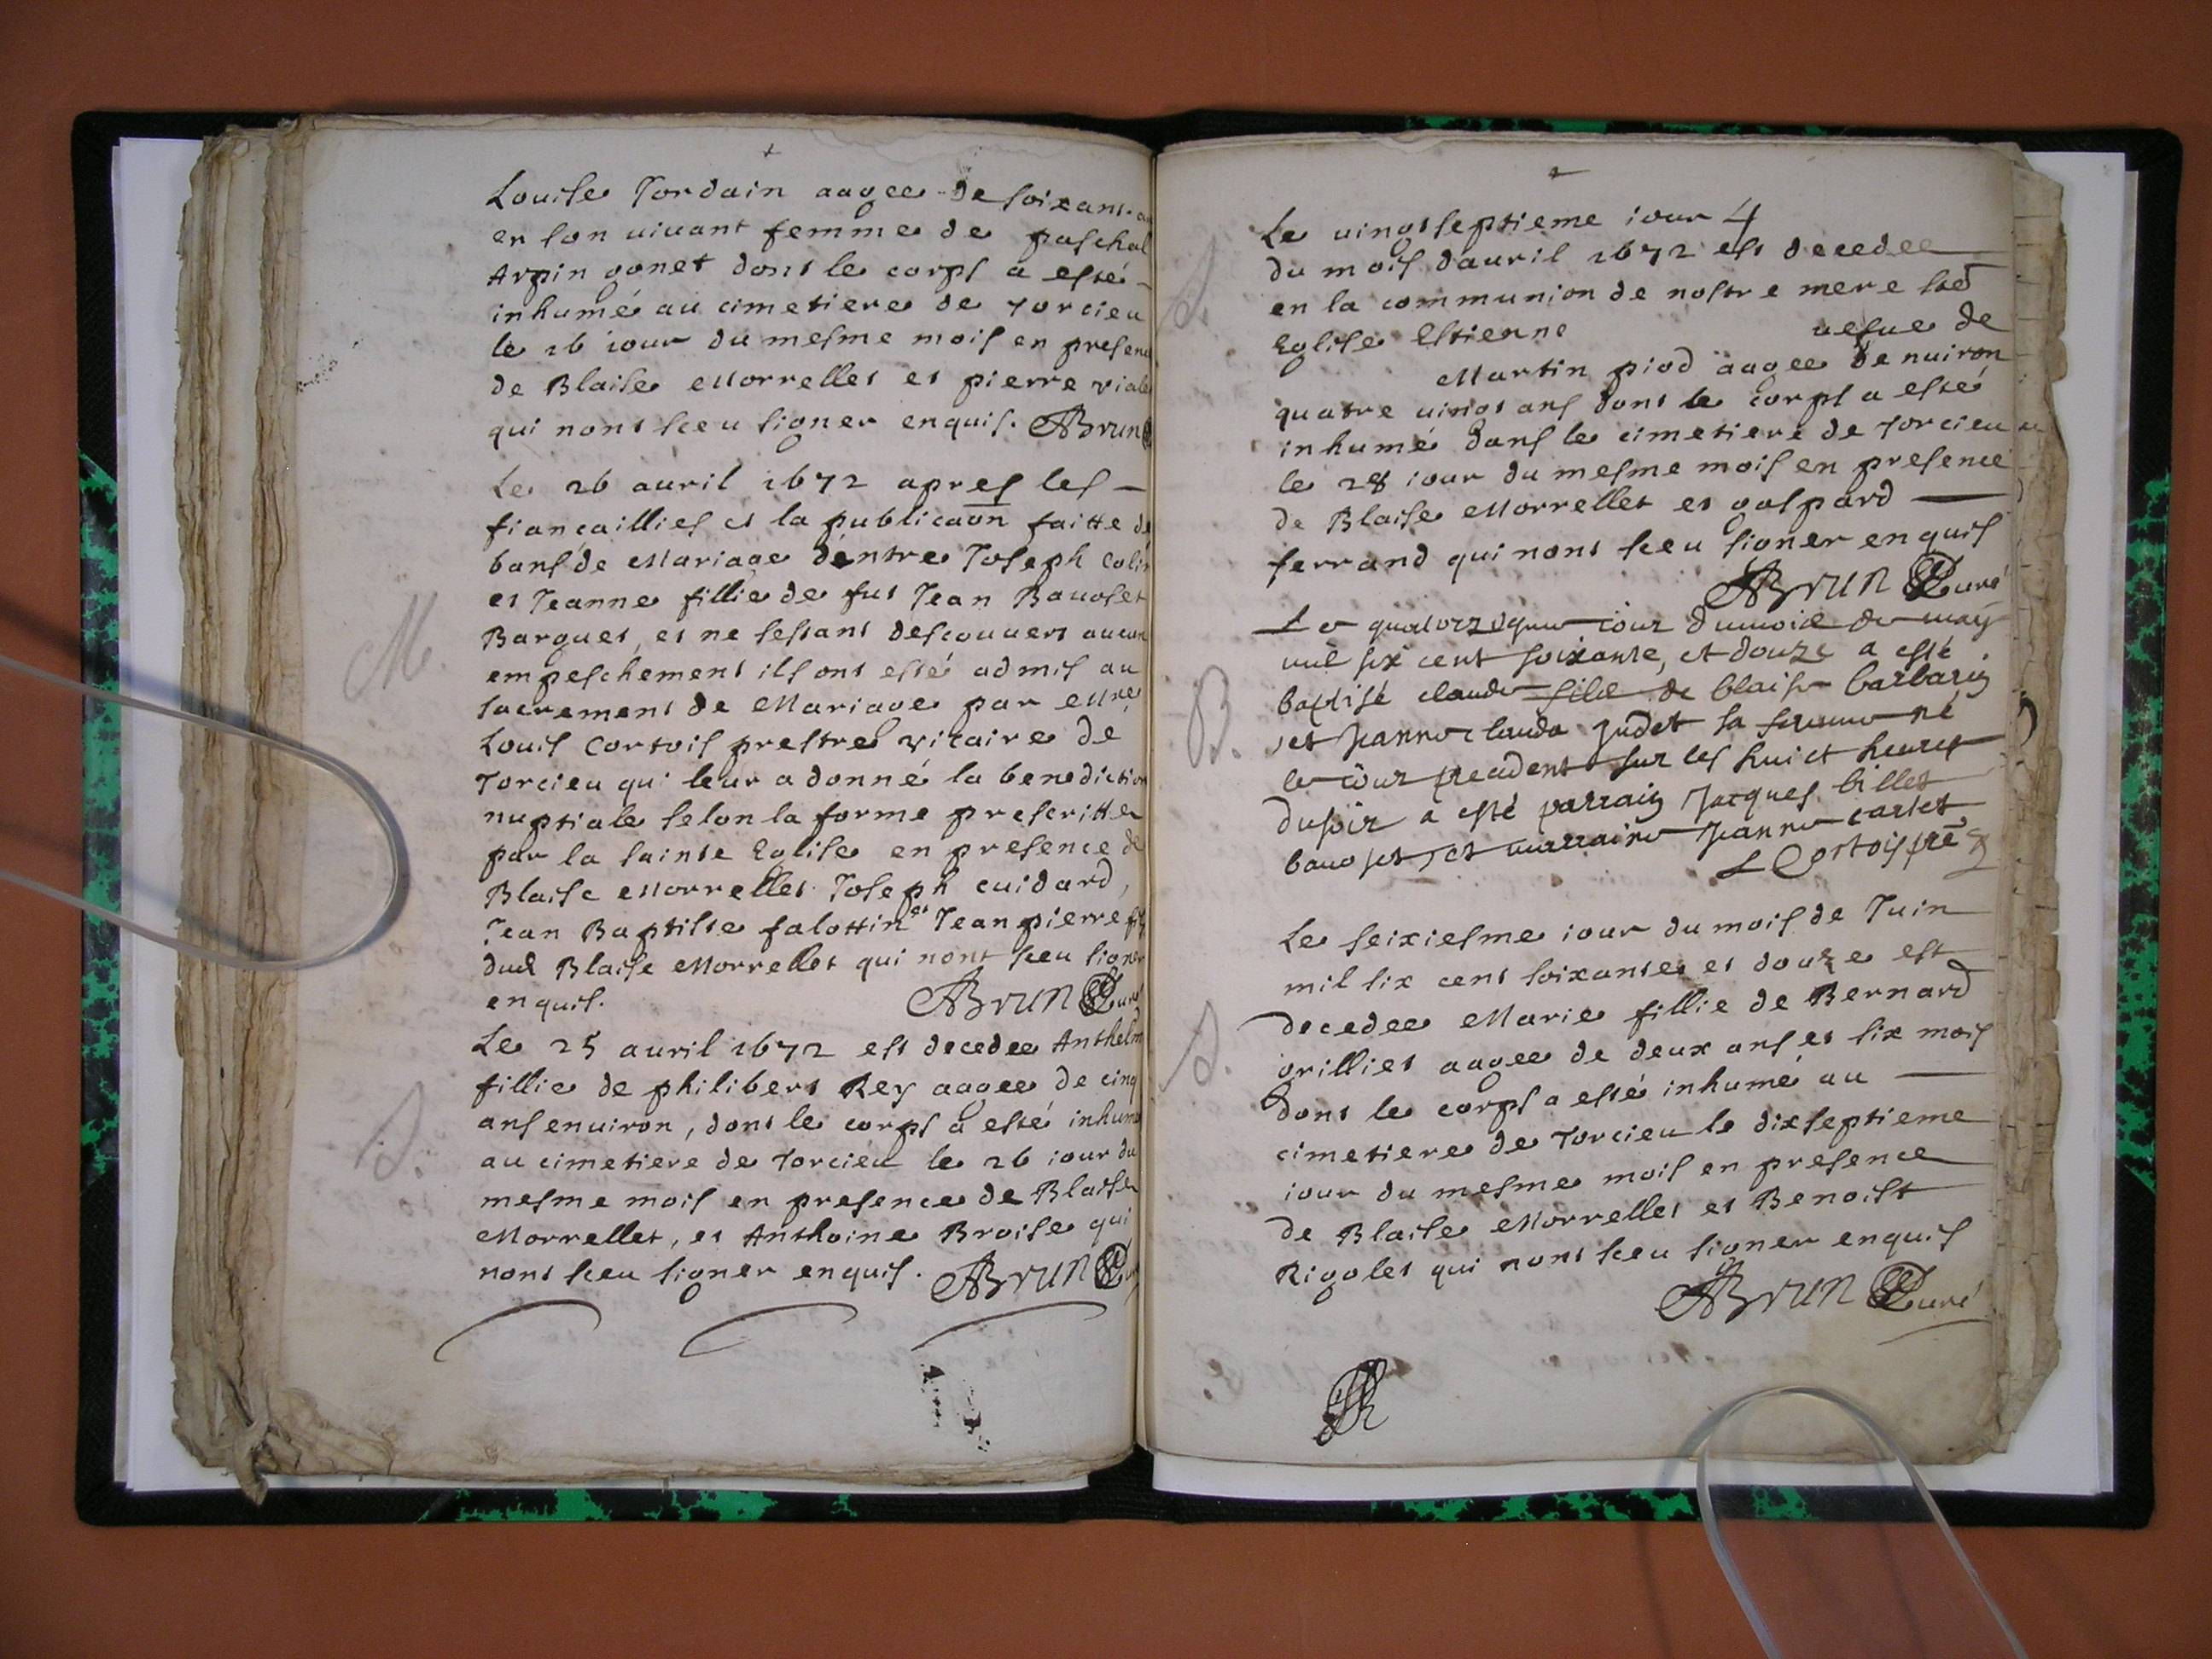 +
Louise Jordain aagee de soixant. an
en son uiuant femme de paschal
Arpin gonet dont le corps a esté
inhumé au cimetiere de Torcieu
le 26 iour du mesme mois en presenc
de Blaise Morrellet et pierre viale
qui nont sceu signer enquis. ABrun
Le 26 auril 1672 apres les
fiançaillies et la publicaõn faitte de
M.
bans de Mariage dentre Joseph Colin
et Jeanne fillie de fut Jean Bauoset
Barquet, et ne sestant descouuert aucun
empeschement ils ont esté admis au
sacrement de Mariage par Mre
Louis Cortois prestre vicaire de
Torcieu qui leur a donné la benediction
nuptiale selon la forme prescritte
par la sainte Eglise en presence de
Blaise Morrellet Joseph cuidard,
Jean Baptiste falottin et Jean pierre fils
dud Blaise Morrellet qui nont sceu signer
enquis. ABrun Curé
Le 25 auril 1672 est decedee Anthelm
fillie de philibert Rey aagee de cinq
S.
ans enuiron, dont le corps a esté inhumé
au cimetiere de Torcieu le 26 iour du
mesme mois en presence de Blaise
Morrellet, et Anthoine Broise qui
nont sceu signer enquis. ABrun Curé
Le uingtseptieme iour 4
S.
du mois dauril 1672 est decedee
en la communion de nostre mere ste
Eglise Estienne uesue de
Martin piod aagee denuiron
quatre uingt ans dont le corps a esté
inhumé dans le cimetiere de Torcieu
le 28 iour du mesme mois en presence
de Blaise Morrellet et gaspard
ferrand qui nont sceu signer enquis
ABrun Curé
Le quatorziesme iour du mois de may
mil six cent soixante, et douze a esté
B.
baptisé claude filz de blaise barbarin
et Jeanne clauda Judet sa femme né
le iour precedent sur les huict heures
du soir a esté parrain Jacques billet
bauoset, et marraine Jeanne carlet
L Cortois pre
Le seixiesme iour du mois de Juin
mil six cent soixante et douze est
S.
decedee Marie fillie de Bernard
grilliet aagee de deux ans et six mois
dont le corps a esté inhumé au
cimetiere de Torcieu le dixseptieme
iour du mesme mois en presence
de Blaise Morrellet et Benoist
Rigolet qui nont sceu signer enquis
ABrun Curé